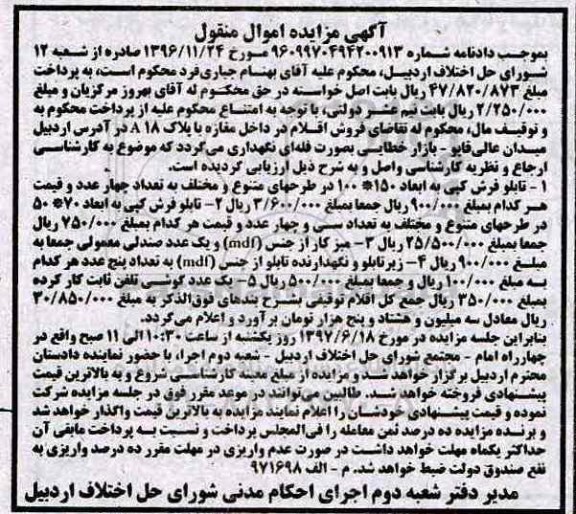 آگهی مزایده اموال منقول
بموجب دادنامه شماره ۹۶۰۹۹۷۰۴۹۴۲۰۰۹۱۳ مورخ ۱۳۹۶/۱۱/۲۴ صادره از شعبه ۱۲
شورای حل اختلاف اردبیل، محکوم علیه آقای بهنام جباری‌فرد محکوم است، به پرداخت
مبلغ ۴۷/۸۲۰/۸۷۳ ریال بابت اصل خواسته در حق محکوم له آقای بهروز مرکزیان و مبلغ
۲/۲۵۰/۰۰۰ ریال بابت نیم عشر دولتی، با توجه به امتناع محکوم علیه از پرداخت محکوم به
و توقیف مال، محکوم له تقاضای فروش اقلام در داخل مغازه با پلاک A ۱۸ در آدرس اردبیل
میدان عالی‌قاپو - بازار خطایی بصورت فله‌ای نگهداری می‌گردد که موضوع به کارشناسی
ارجاع و نظریه کارشناسی واصل و به شرح ذیل ارزیابی گردیده است.
۱ - تابلو فرش کپی به ابعاد ۱۵۰* ۱۰۰ در طرحهای متنوع و مختلف به تعداد چهار عدد و قیمت
هر کدام بمبلغ ۹۰۰/۰۰۰ ریال جمعا بمبلغ ۳/۶۰۰/۰۰۰ ریال ۲- تابلو فرش کپی به ابعاد ۷۰* ۵۰
در طرحهای متنوع و مختلف به تعداد سی و چهار عدد و قیمت هر کدام بمبلغ ۷۵۰/۰۰۰ ریال
جمعا بمبلغ ۲۵/۵۰۰/۰۰۰ ریال ۳- میز کار از جنس (mdf) و یک عدد صندلی معمولی جمعا به
مبلغ ۹۰۰/۰۰۰ ریال ۴- زیرتابلو و نگهدارنده تابلو از جنس (mdf) به تعداد پنج عدد هر کدام
به مبلغ ۱۰۰/۰۰۰ ریال و جمعا بمبلغ ۵۰۰/۰۰۰ ریال ۵- یک عدد گوشی تلفن ثابت کار کرده
بمبلغ ۳۵۰/۰۰۰ ریال جمع کل اقلام توقیفی بشرح بندهای فوق‌الذکر به مبلغ ۳۰/۸۵۰/۰۰۰
ریال معادل سه میلیون و هشتاد و پنج هزار تومان برآورد و اعلام می‌گردد.
بنابراین جلسه مزایده در مورخ ۱۳۹۷/۶/۱۸ روز یکشنبه از ساعت ۱۰:۳۰ الی ۱۱ صبح واقع در
چهارراه امام - مجتمع شورای حل اختلاف اردبیل - شعبه دوم اجرا، با حضور نماینده دادستان
محترم اردبیل برگزار خواهد شد و مزایده از مبلغ معینه کارشناسی شروع و به بالاترین قیمت
پیشنهادی فروخته خواهد شد. طالبین می‌توانند در موعد مقرر فوق در جلسه مزایده شرکت
نموده و قیمت پیشنهادی خودشان را اعلام نمایند مزایده به بالاترین قیمت واگذار خواهد شد
و برنده مزایده ده درصد ثمن معامله را فی‌المجلس پرداخت و نسبت به پرداخت مابقی آن
حداکثر یکماه مهلت خواهد داشت در صورت عدم واریزی در مهلت مقرر ده درصد واریزی به
نفع صندوق دولت ضبط خواهد شد. م - الف ۹۷۱۶۹۸
مدیر دفتر شعبه دوم اجرای احکام مدنی شورای حل اختلاف اردبیل